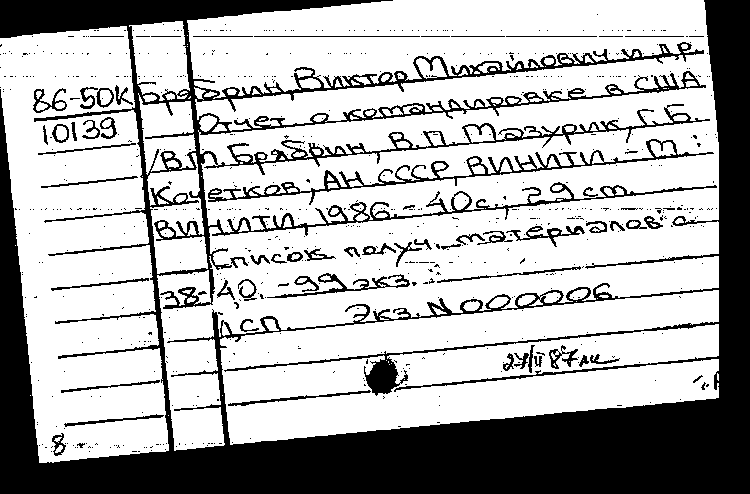 86-50К Брябрин, Виктор Михайлович и др.
10139 Отчет о командировке в США
/В.М. Брябрин, В.П. Мазурик, Г.Б.
Кочетков; АН СССР, ВИНИТИ. - М.:
ВИНИТИ, 1986. - 40 с.; 29 см.
Список получ. материалов с.
38-40. - 99 экз.
ДСП. Экз. N 000006
27/II 87
8